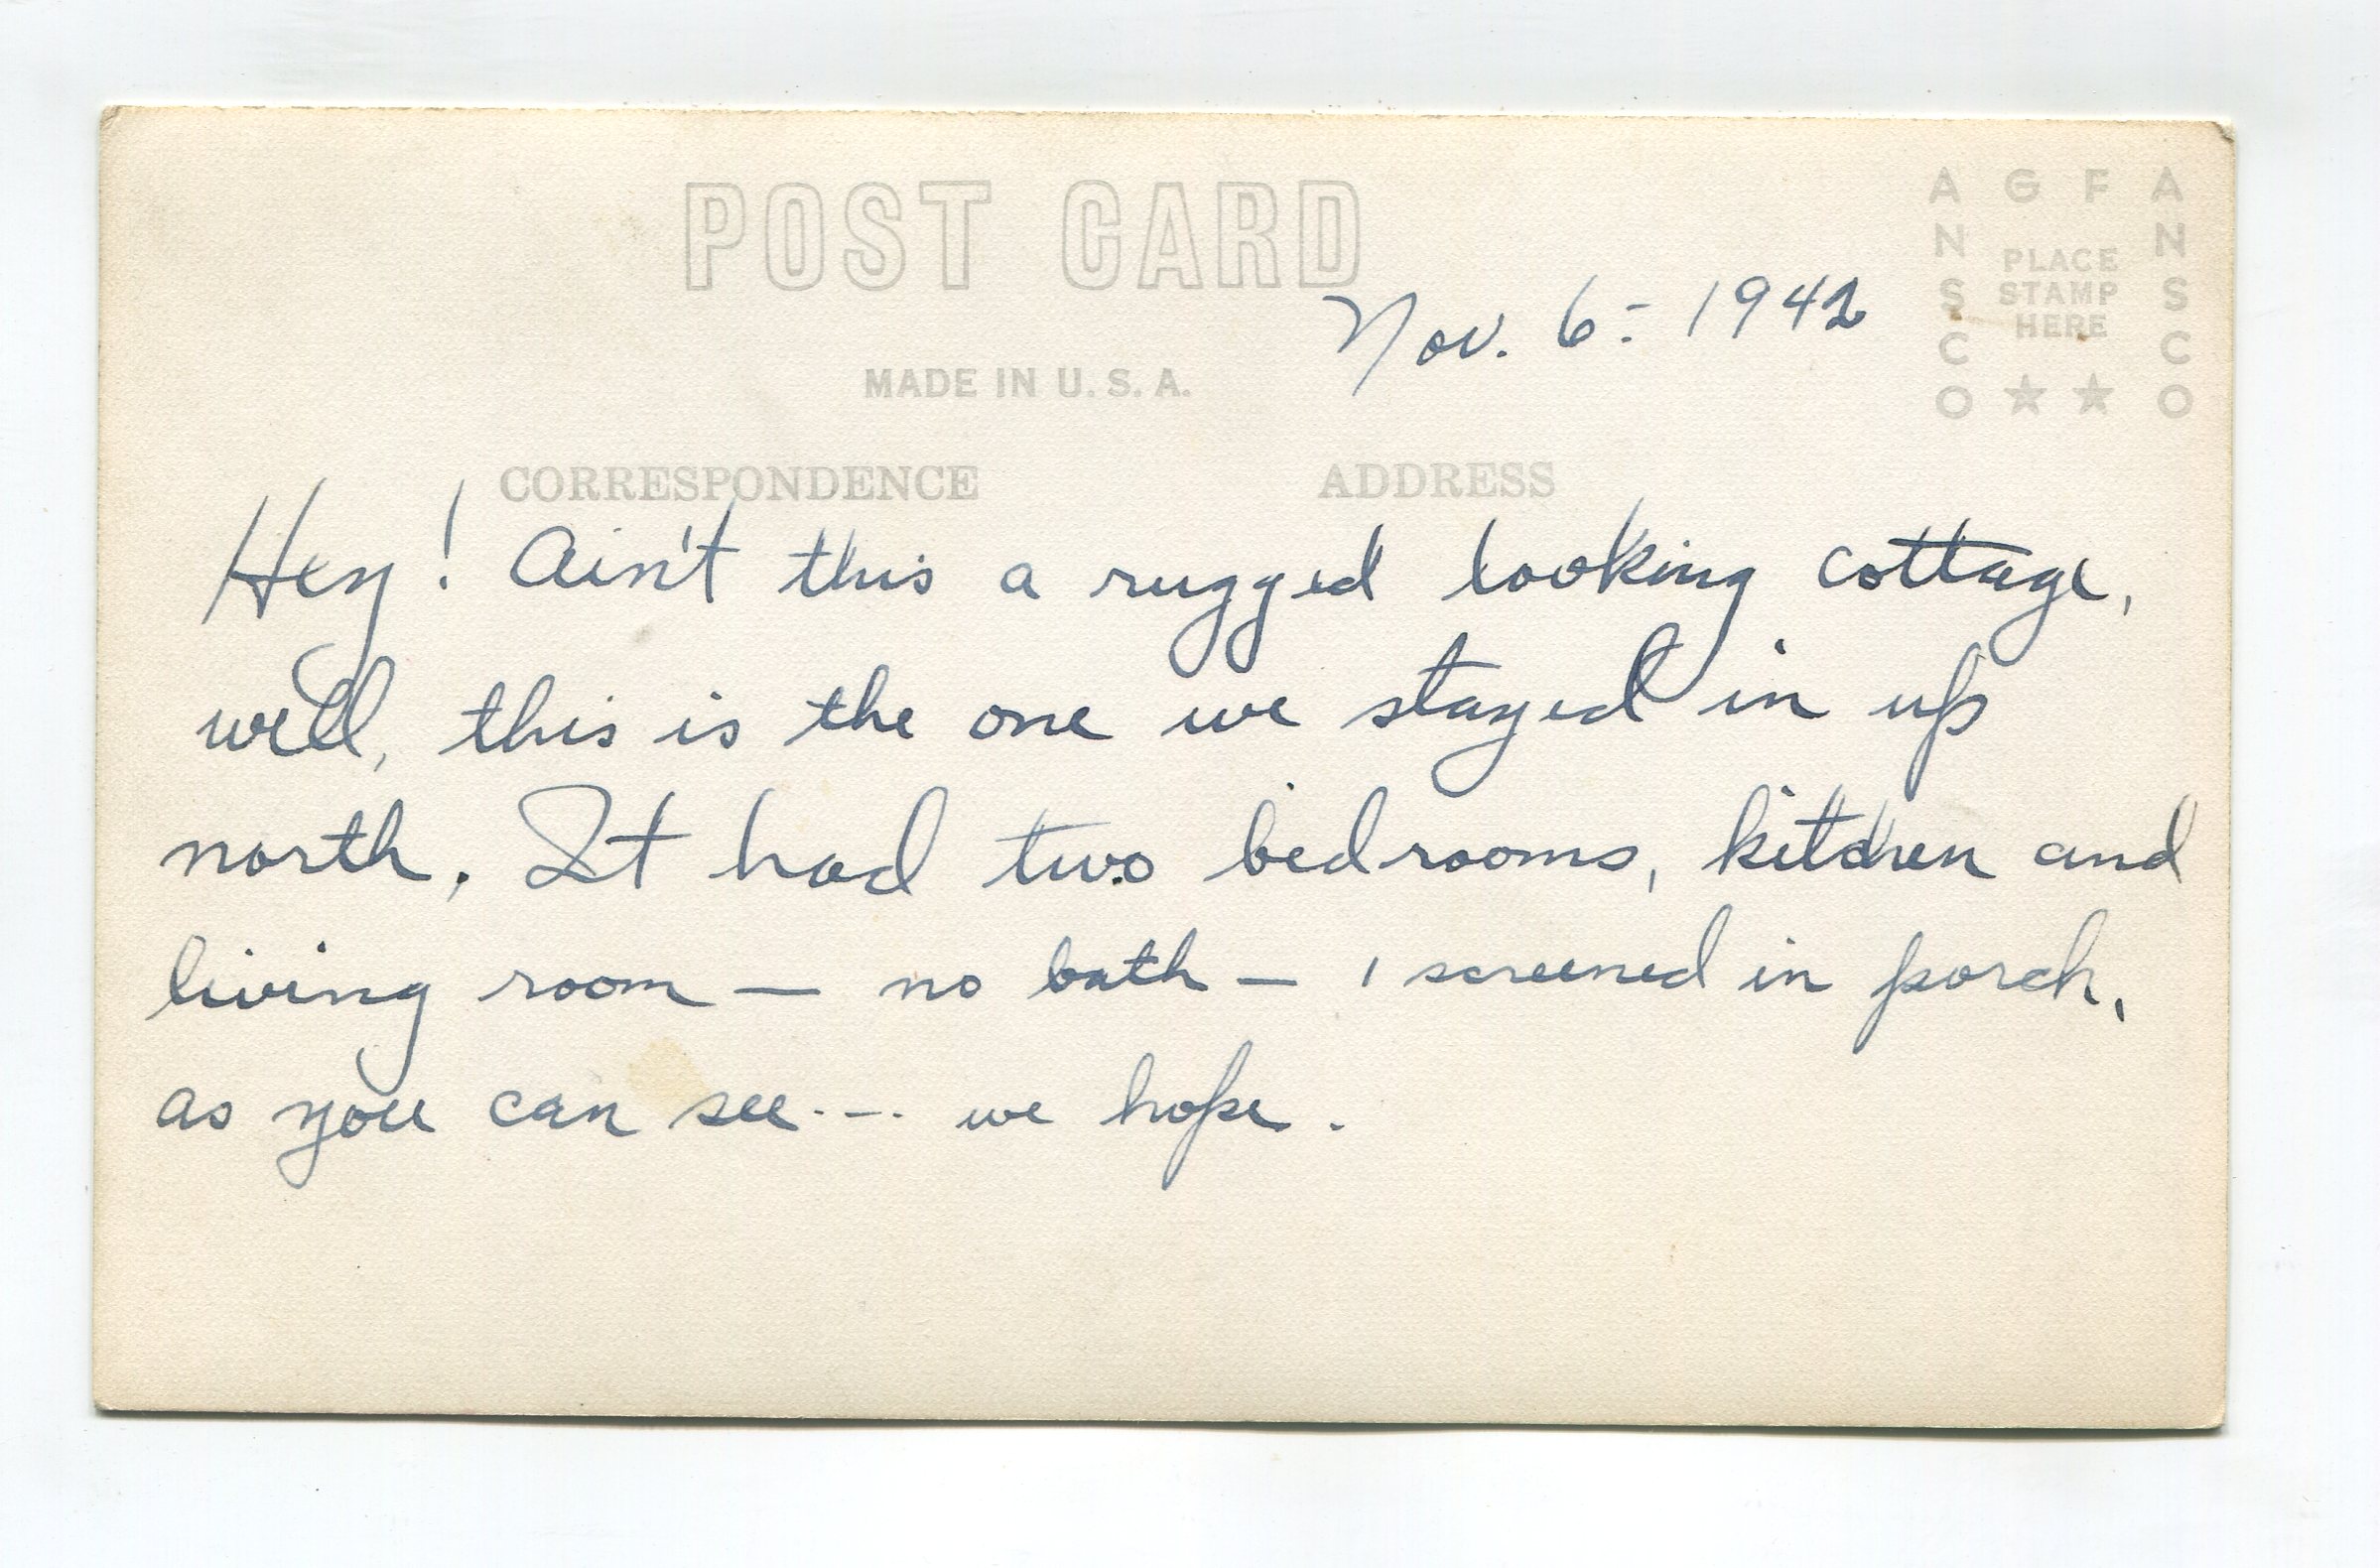 POST CARD
A G F A
N N
PLACE
STAMP
HERE
S S
C C
O ★ ★ O
Nov. 6 - 1942
MADE IN U.S.A.
CORRESPONDENCE ADDRESS
Hey! Ain't this a rugged looking cottage,
well, this is the one we stayed in up
north. It had two bedrooms, kitchen and
living room — no bath — 1 screened in porch,
as you can see --- we hope.